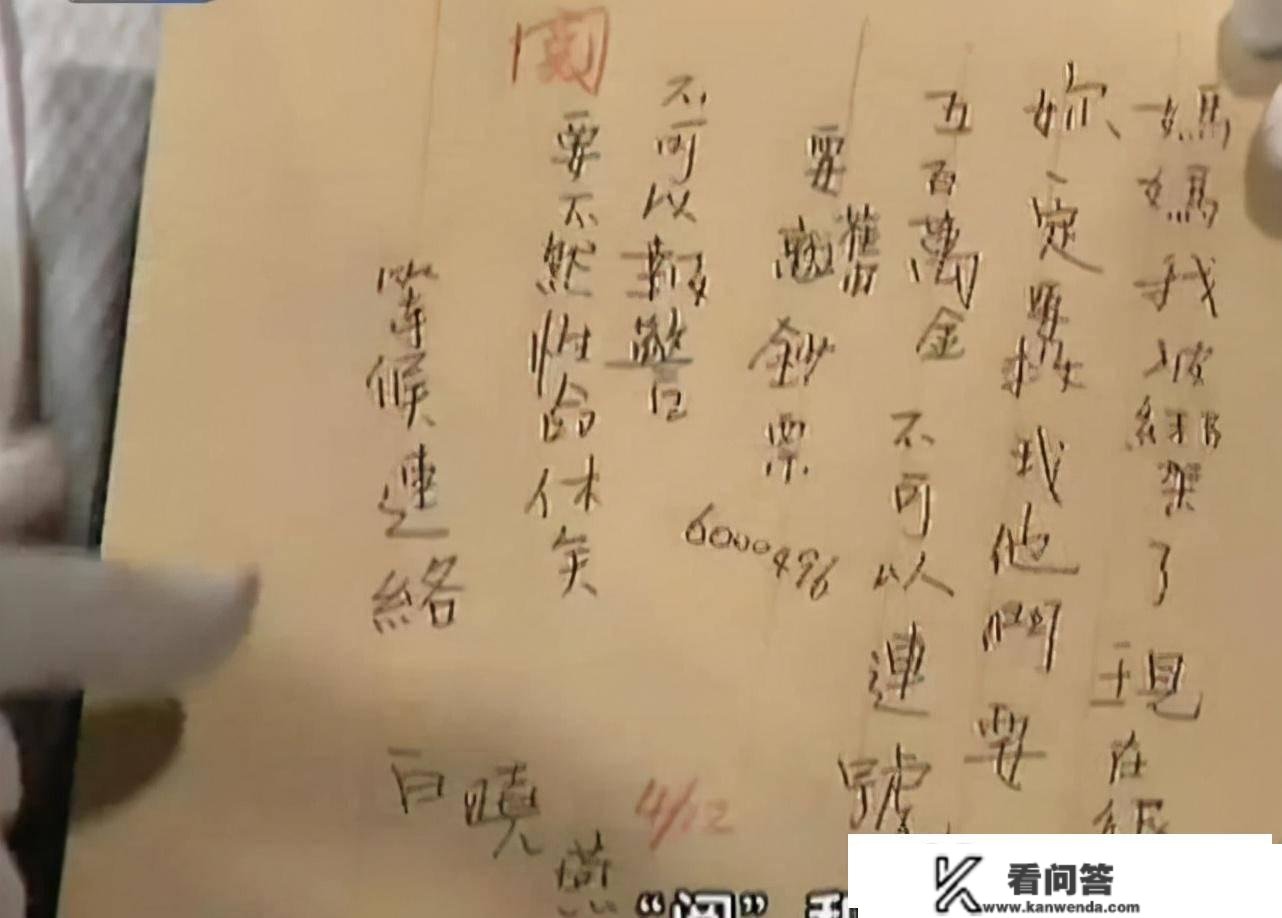 媽媽我被綁架了現在
妳一定要救我他們要
五百萬金 不可以連號
要舊鈔票
6000496
不可以報警
要不然性命休矣
等候連絡
白曉燕
4/12
看问答
www.kanwenda.com